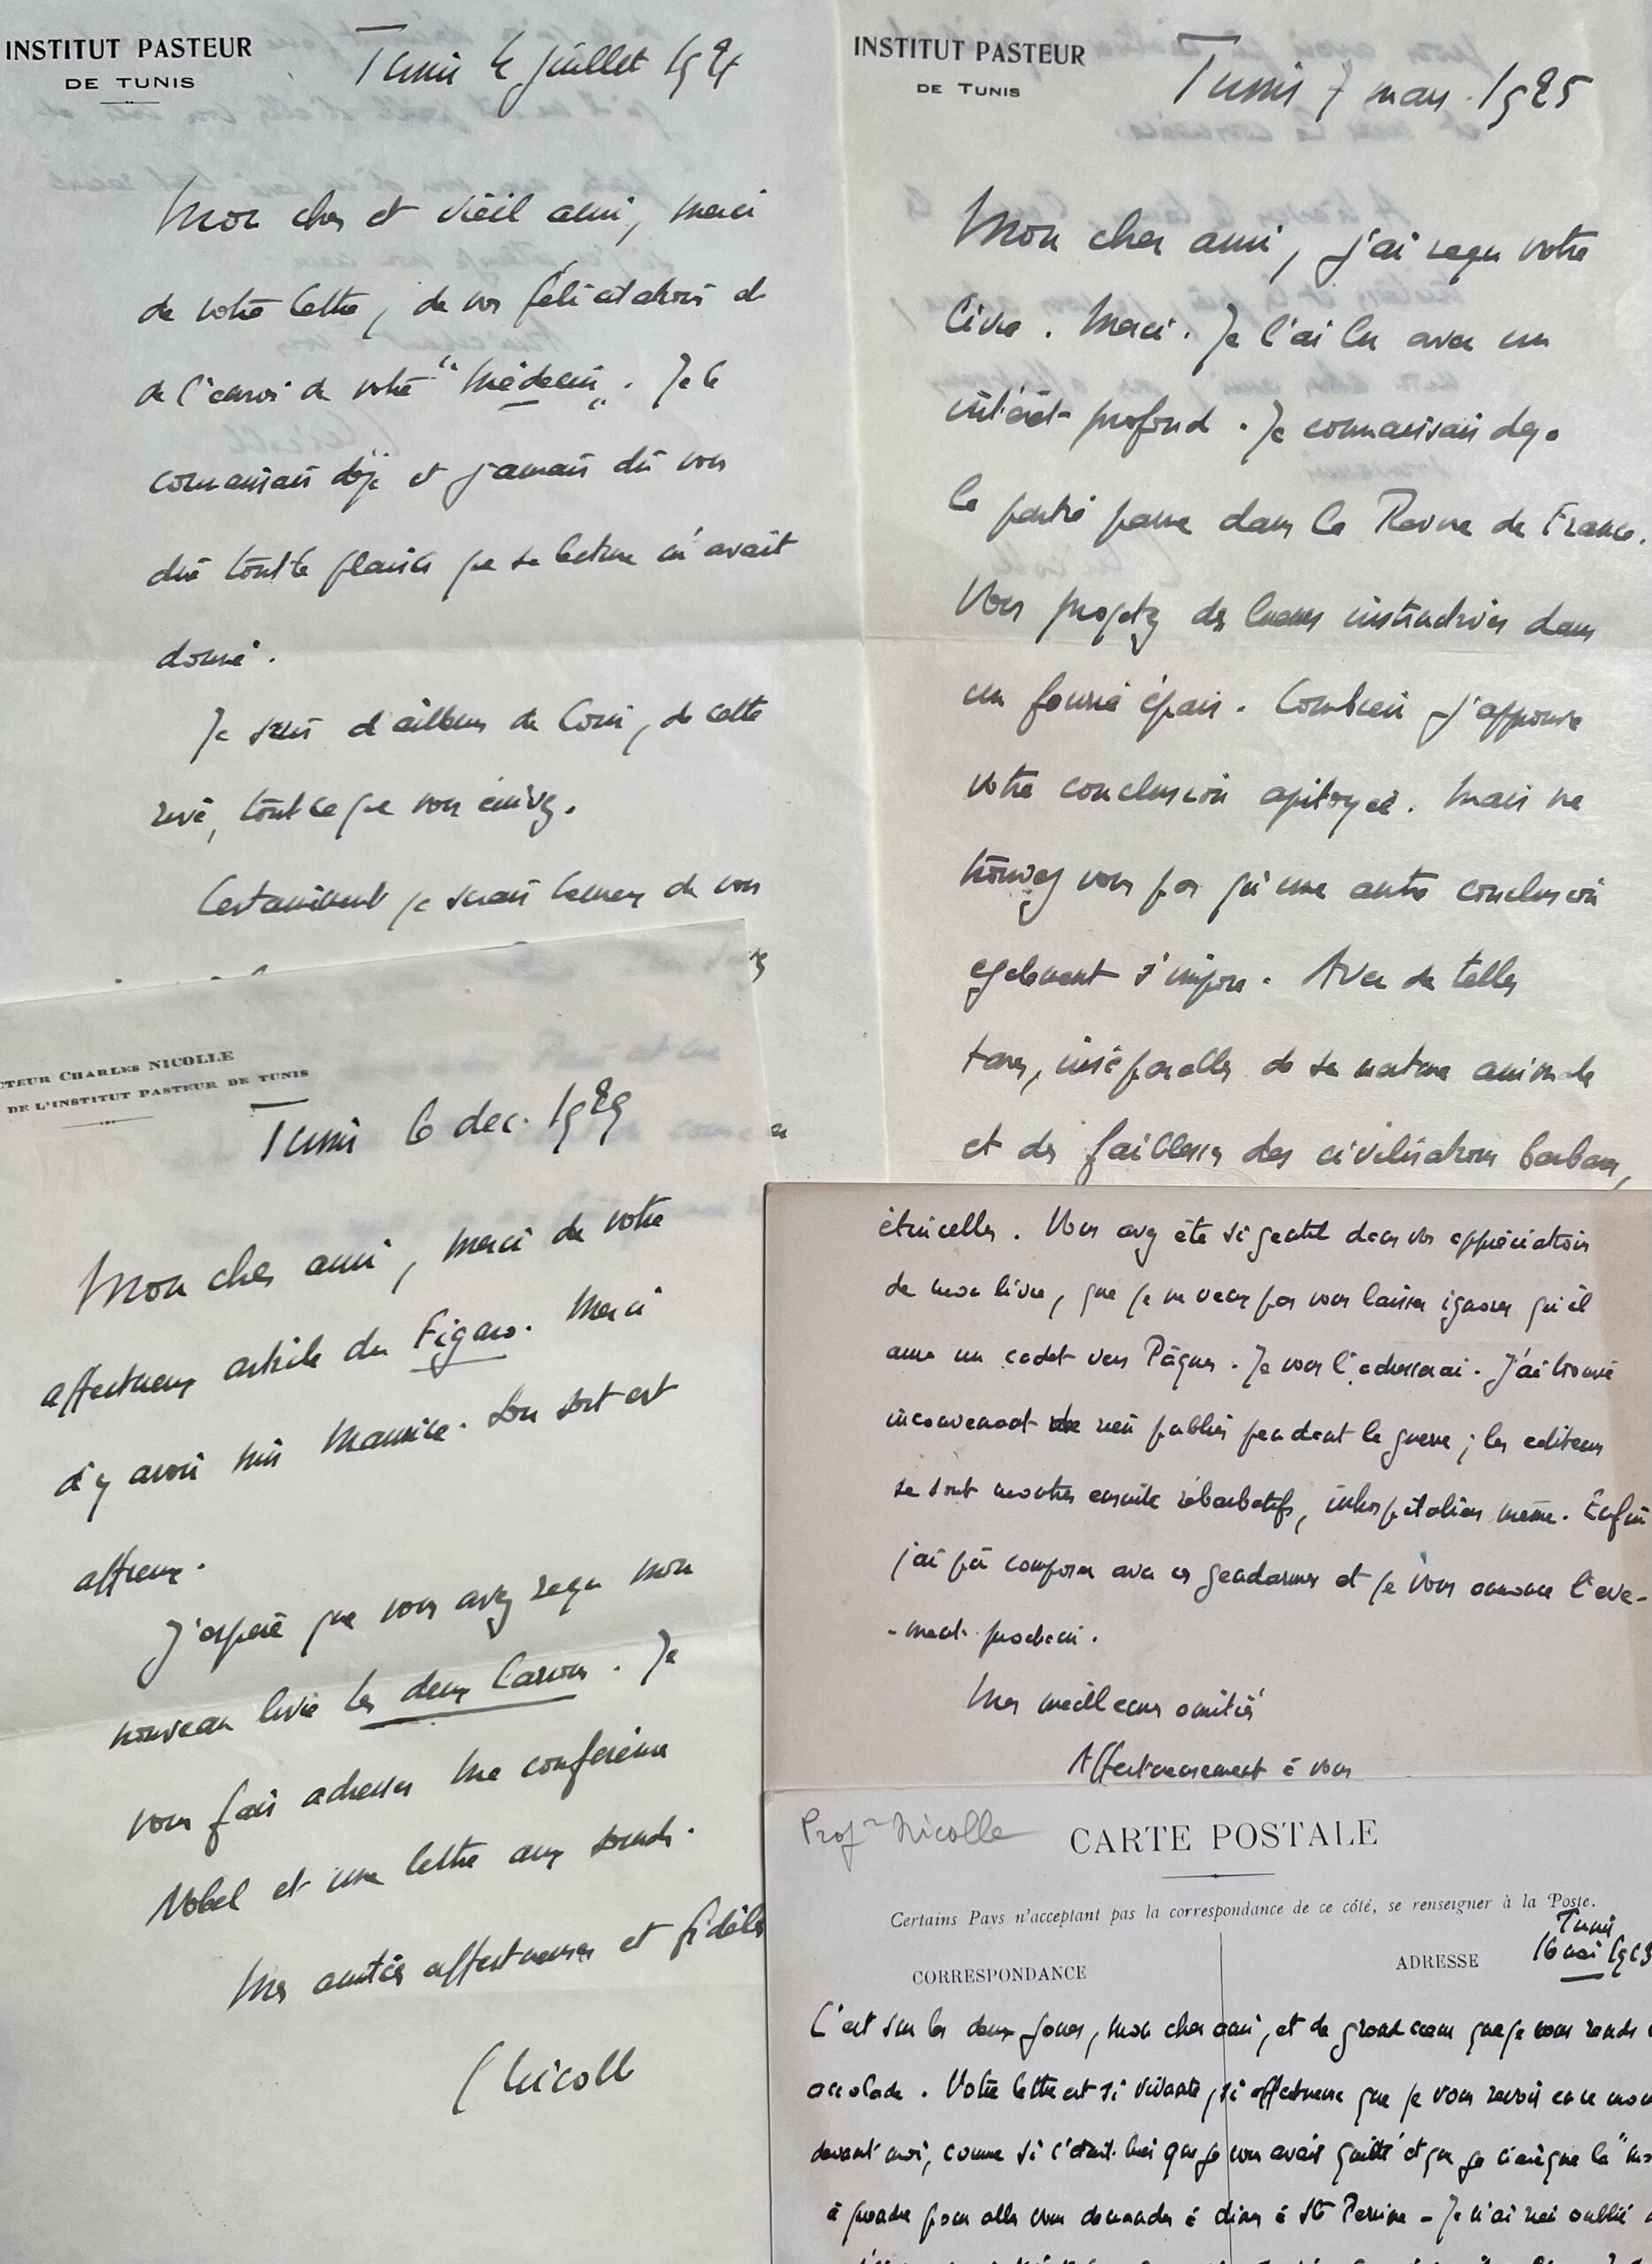 INSTITUT PASTEUR
DE TUNIS
Tunis 4 juillet 192
Mon cher et vieil ami, merci
de votre lettre, de vos félicitations et
de l'envoi de votre "Médecin". Je le
connaissais déjà et j'aurais dû vous
dire tout le plaisir que sa lecture m'avait
donné.
Je suis d'ailleurs de loin, de cette
rive, tout ce que vous écrivez.
Certainement je serais heureux de vous
INSTITUT PASTEUR
DE TUNIS
Tunis 7 mars 1925
Mon cher ami, j'ai reçu votre
livre. Merci. Je l'ai lu avec un
intérêt profond. Je connaissais déjà
la partie parue dans la Revue de France.
Vous projetez des lueurs instructives dans
un fourré épais. Combien j'approuve
votre conclusion apitoyée. Mais ne
trouvez vous pas qu'une autre conclusion
egalement s'impose. Avec de telles
tares, inséparables de sa nature animale
et des faiblesses des civilisations barbares,
CTEUR CHARLES NICOLLE
DE L'INSTITUT PASTEUR DE TUNIS
Tunis 6 dec. 1929
Mon cher ami, merci de votre
affectueux article du Figaro. Merci
d'y avoir mis Maurice. Son sort est
affreux.
J'espère que vous avez reçu mon
nouveau livre les deux Larrons. Je
vous fais adresser ma conférence
Nobel et une lettre aux sourds.
Mes amitiés affectueuses et fidèles
C Nicolle
étincelles. Vous avez été si gentil dans vos appréciations
de mon livre, que je ne veux pas vous laisser ignorer qu'il
aura un cadet vers Pâques. Je vous l'adresserai. J'ai trouvé
inconvenant de rien publier pendant la guerre; les editeurs
se sont montrés ensuite rébarbatifs, inhospitaliers même. Enfin
j'ai pû composer avec ces gendarmes et je vous annonce l'eve-
-ment prochain.
Mes meilleures amitiés
Affectueusement à vous
Prof Nicolle
CARTE POSTALE
Certains Pays n'acceptant pas la correspondance de ce côté, se renseigner à la Poste.
Tunis
16 mai 19
CORRESPONDANCE
ADRESSE
C'est sur les deux joues, mon cher ami, et de grand cœur que je vous rends
accolade. Votre lettre est si vivante, si affectueuse que je vous revois en ce mo
devant moi, comme si c'était hier que je vous avais quitté et que je
à prendre pour aller vous demander à diner à Ste Perrine - Je n'ai rien oublié